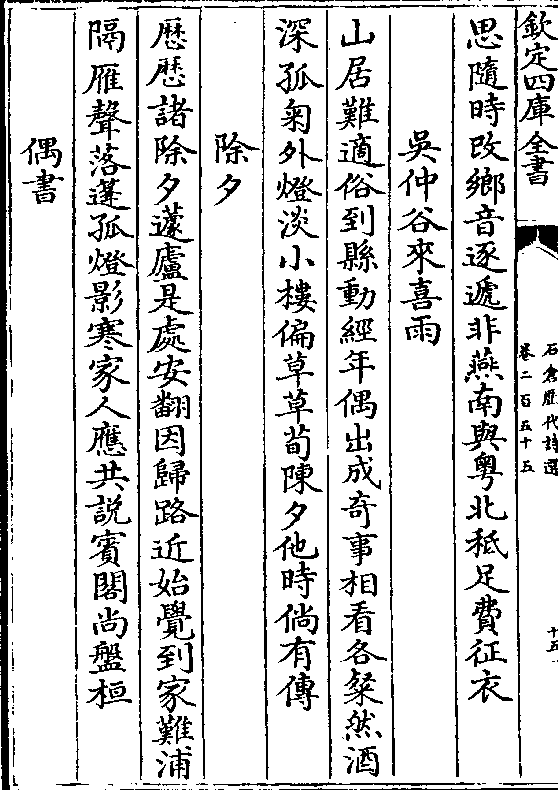 欽定四庫全書
石倉歴代詩選
卷二百五十五
十五
思隨時改鄉音逐遞非燕南與粤北秪足費征衣
吳仲谷來喜雨
山居難適俗到縣動經年偶出成奇事相看各粲然酒
深孤菊外燈淡小樓偏草草荀陳夕他時倘有傳
除夕
厯厯諸除夕蘧廬是處安翻因歸路近始覺到家難浦
隔雁聲落蓬孤燈影寒家人應共説賓閣尚盤桓
偶書